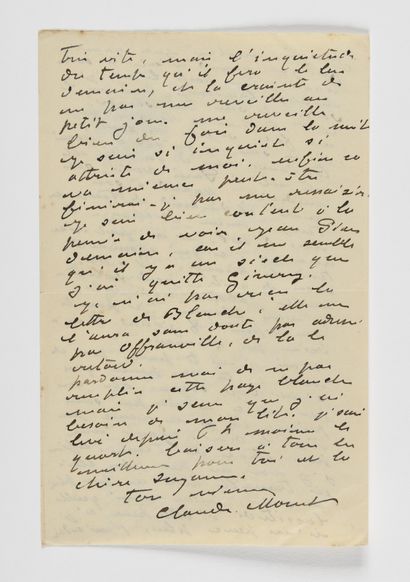 très vite, mais l'inquiétude
du temps qu'il fera le len
demain, et la crainte de
ne pas me réveiller au
petit jour me réveille
bien des fois dans la nuit
je suis si inquiet si
attristé de moi. enfin
va mieux peut-être
finirai-je par me ressaisir.
je suis bien content à la
pensée de voir Jean Pierre
demain, car il me semble
qu'il y a un siècle que
j'ai quitté Giverny.
je n'ai pas reçu la
lettre de Blanche, elle ne
l'aura sans doute pas adressé
par Offranville, de là le
retard.
pardonne moi de ne pas
remplir cette page blanche
mais je sens que j'ai
besoin de mon lit. je suis
levé depuis 6 h moins le
quart. baisers à tous les
meilleurs pour toi et la
chère Suzanne.
Ton
Claude Monet